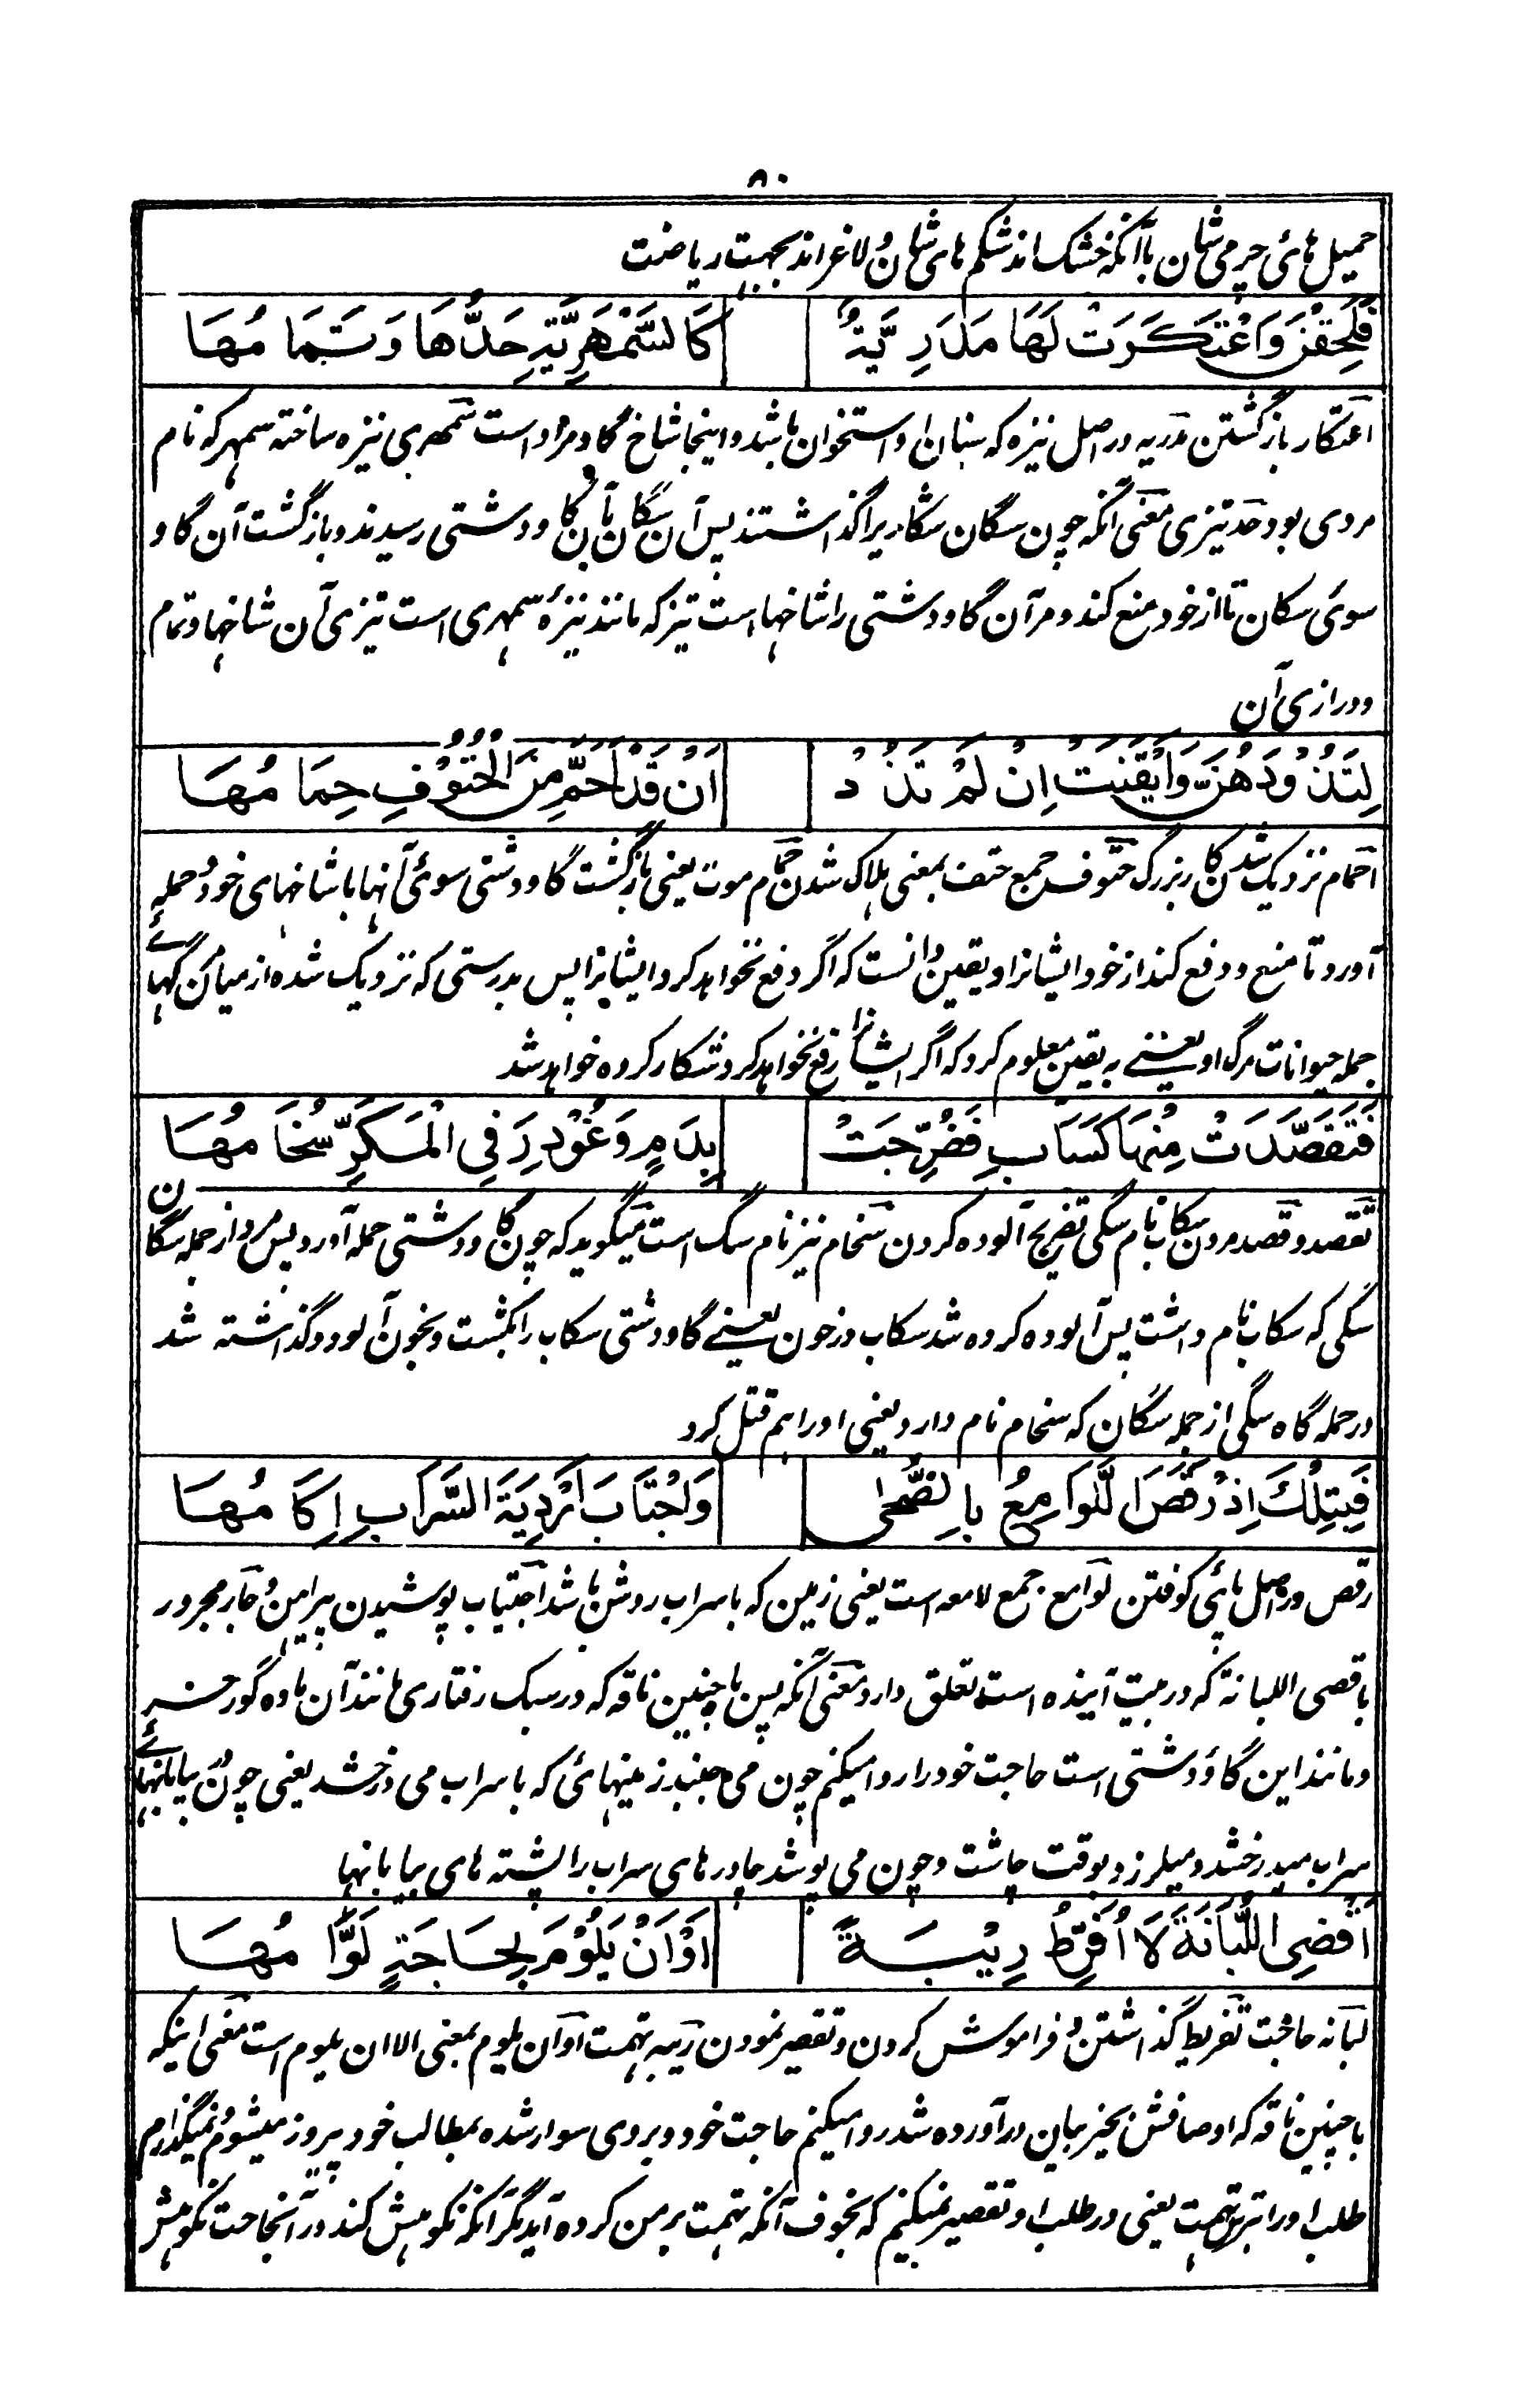 ۸۰
حمیل های چرمی شان باآنکه خشک اند شکم های شان و لاغر اند بجهت ریاضت
فَلَحِقْنَ وَاعْتَكَرَتْ لَهَا مَدَرِيَّةٌ كَالسَّمْهَرِيَّةِ حَدُّهَا وَتَمَامُهَا
اعتکار بازگشتن مدریه در اصل نیزه که سنان او استخوان باشد و اینجا شاخ گاو مراد است سمهری نیزه ساخته سمهر که نام
مردی بود حد تیزی معنی آنکه چون سگان شکار برا گذاشتند پس آن سگان بآن گاو دشتی رسیدند و بازگشت آن گاو
سوی سگان تا از خود منع کند و مر آن گاو دشتی را شاخها است تیز که مانند نیزهٔ سمهری است تیزی آن شاخها و تمام
و درازی آن
لِتَذُوْدَهُنَّ وَاَيْقَنَتْ اِنْ لَمْ تَذُدْ اَنْ قَدْ اَحَمَّ مِنَ الْحُتُوْفِ حِمَامُهَا
احمام نزدیک شدن کار بزرگ حتوف جمع حتف بمعنی هلاک شدن حمام موت یعنی بازگشت گاو دشتی سوئی آنها با شاخهای خود و حمله
آورد تا منع و دفع کند از خود ایشانرا و یقین دانست که اگر دفع نخواهد کرد ایشانرا پس بدرستی که نزدیک شده از میان مرگهائے
جمله حیوانات مرگ او یعنے به یقین معلوم کرد که اگر ایشانرا دفع نخواهد کرد شکار کرده خواهد شد
فَتَقَصَّدَتْ مِنْهَا كَسَابِ فَضُرِّجَتْ بِدَمٍ وَغُوْدِرَ فِي الْمَكَرِّ سُخَامُهَا
تقصد و قصد مردن سکاب نام سگی تضریج آلوده کردن سخام نیز نام سگ است میگوید که چون گاو دشتی حمله آورد پس مرد از جمله سگان
سگی که سکاب نام داشت پس آلوده کرده شد سکاب در خون یعنے گاو دشتی سکاب را بکشت و بخون آلود و گذاشته شد
در حمله گاه سگی از جمله سگان که سخام نام دارد یعنی او را هم قتل کرد
فَبِتِلْكَ اِذْ رَقَصَ اللَّوَامِعُ بِالضُّحٰى وَاجْتَابَ اَرْدِيَةَ السَّرَابِ اِكَامُهَا
رقص در اصل پای کوفتن لوامع جمع لامعه است یعنی زمین که با سراب روشن باشد اجتیاب پوشیدن پیراهن و جار مجرور
با قضی اللبانة که در بیت آینده است تعلق دارد معنی آنکه پس با چنین ناقه که در سبک رفتاری مانند آن ماده گورخر
و مانند این گاؤ دشتی است حاجت خود را روا میکنم چون می جنبد زمینهائی که با سراب می درخشد یعنی چون بیابانهائے
سراب میدرخشد و میلرزد بوقت چاشت و چون می پوشد چادرهای سراب را پشته های بیابانها
اَقْضِي اللُّبَانَةَ لَا اُفَرِّطُ رِيْبَةً اَوْ اَنْ يَلُوْمَ بِحَاجَةٍ لَوَّامُهَا
لبانه حاجت تفریط گذاشتن و فراموش کردن و تقصیر نمودن ریبه تهمت او ان یلوم بمعنی الا ان یلوم است معنی اینکه
با چنین ناقه که اوصافش بحیز بیان درآورده شد روا میکنم حاجت خود و بر وی سوار شده بمطالب خود پیروز میشوم و نمیگذارم
طلب او را بترس تهمت یعنی در طلب او تقصیر نمیکنم که بخوف آنکه تهمت بر من کرده آید مگر آنکه نکوهش کند در آن حاجت نکوهش